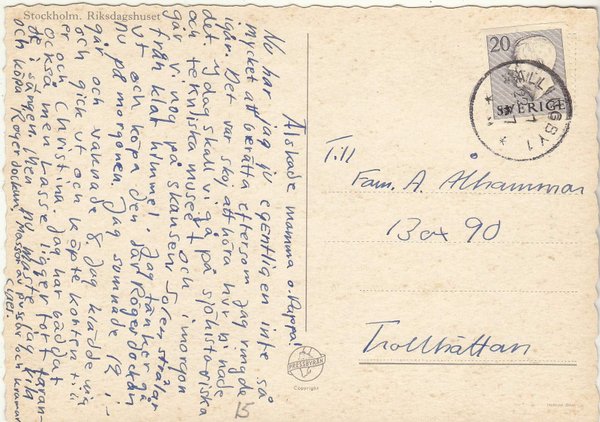 Stockholm. Riksdagshuset
Älskade mamma o. Pappa!
Nu har jag ju egentligen inte så
mycket att berätta eftersom jag ringde
igår. Det var skoj att höra hur ni hade
det. I dag skall vi gå på sjöhistoriska
och tekniska museet och i morgon
går vi nog på skansen. Solen strålar
från klar himmel. Jag tänker gå
ut och köpa den där Rögerdockan
nu på morgonen. Jag somnade 12
går och vaknade 8. Jag klädde mig
och gick ut och köpte korten till
och Christina. Jag har bäddat
också men Lasse ligger fortfaran-
de i sängen. Men nu måste jag
och köpa Rögerdockan. Massor av pussar och kramar
15
20
SVERIGE
VÄLLINGBY 1
Till
Fam. A. Alhammar
Box 90
Trollhättan
PRESSBYRÅN
Copyright